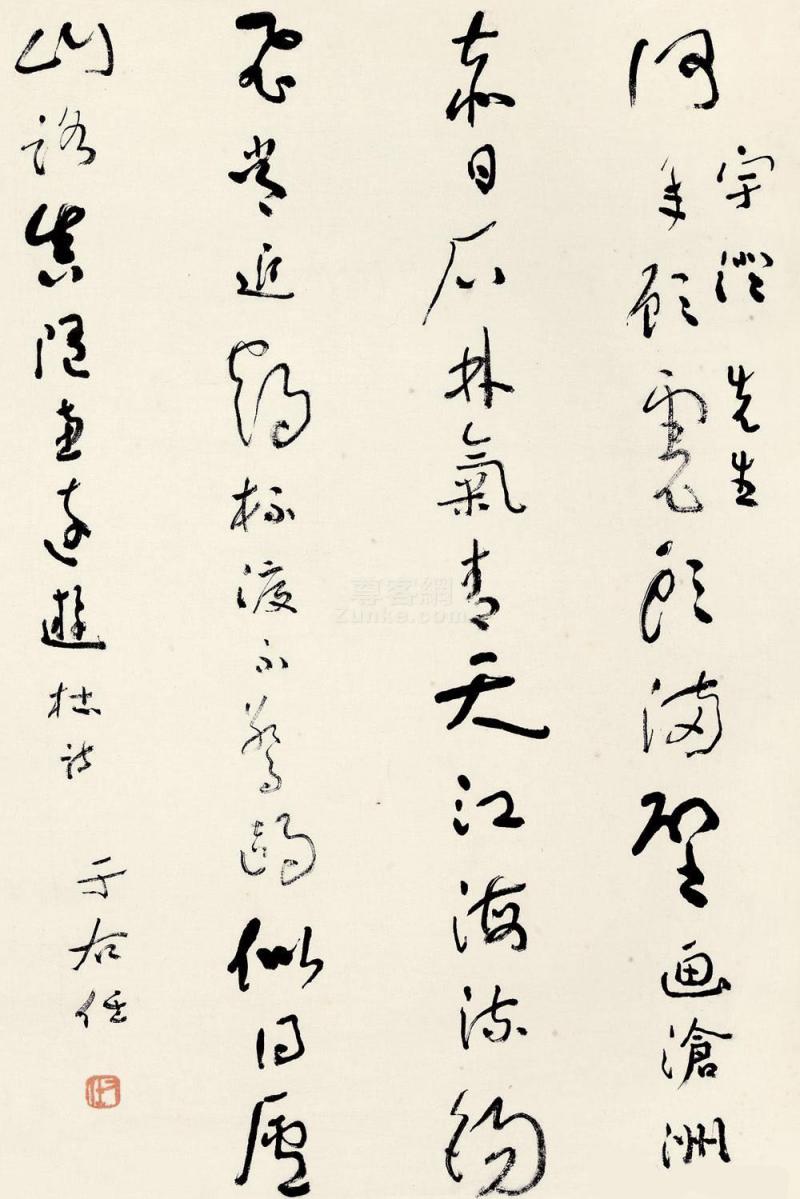 宇澄先生
何年顧虎頭滿壁画滄洲
赤日石林氣青天江海流錫
飛常近鶴杯渡不驚鷗似得廬
山路真隨惠遠遊杜詩
于右任
尊客網
Zunke.com